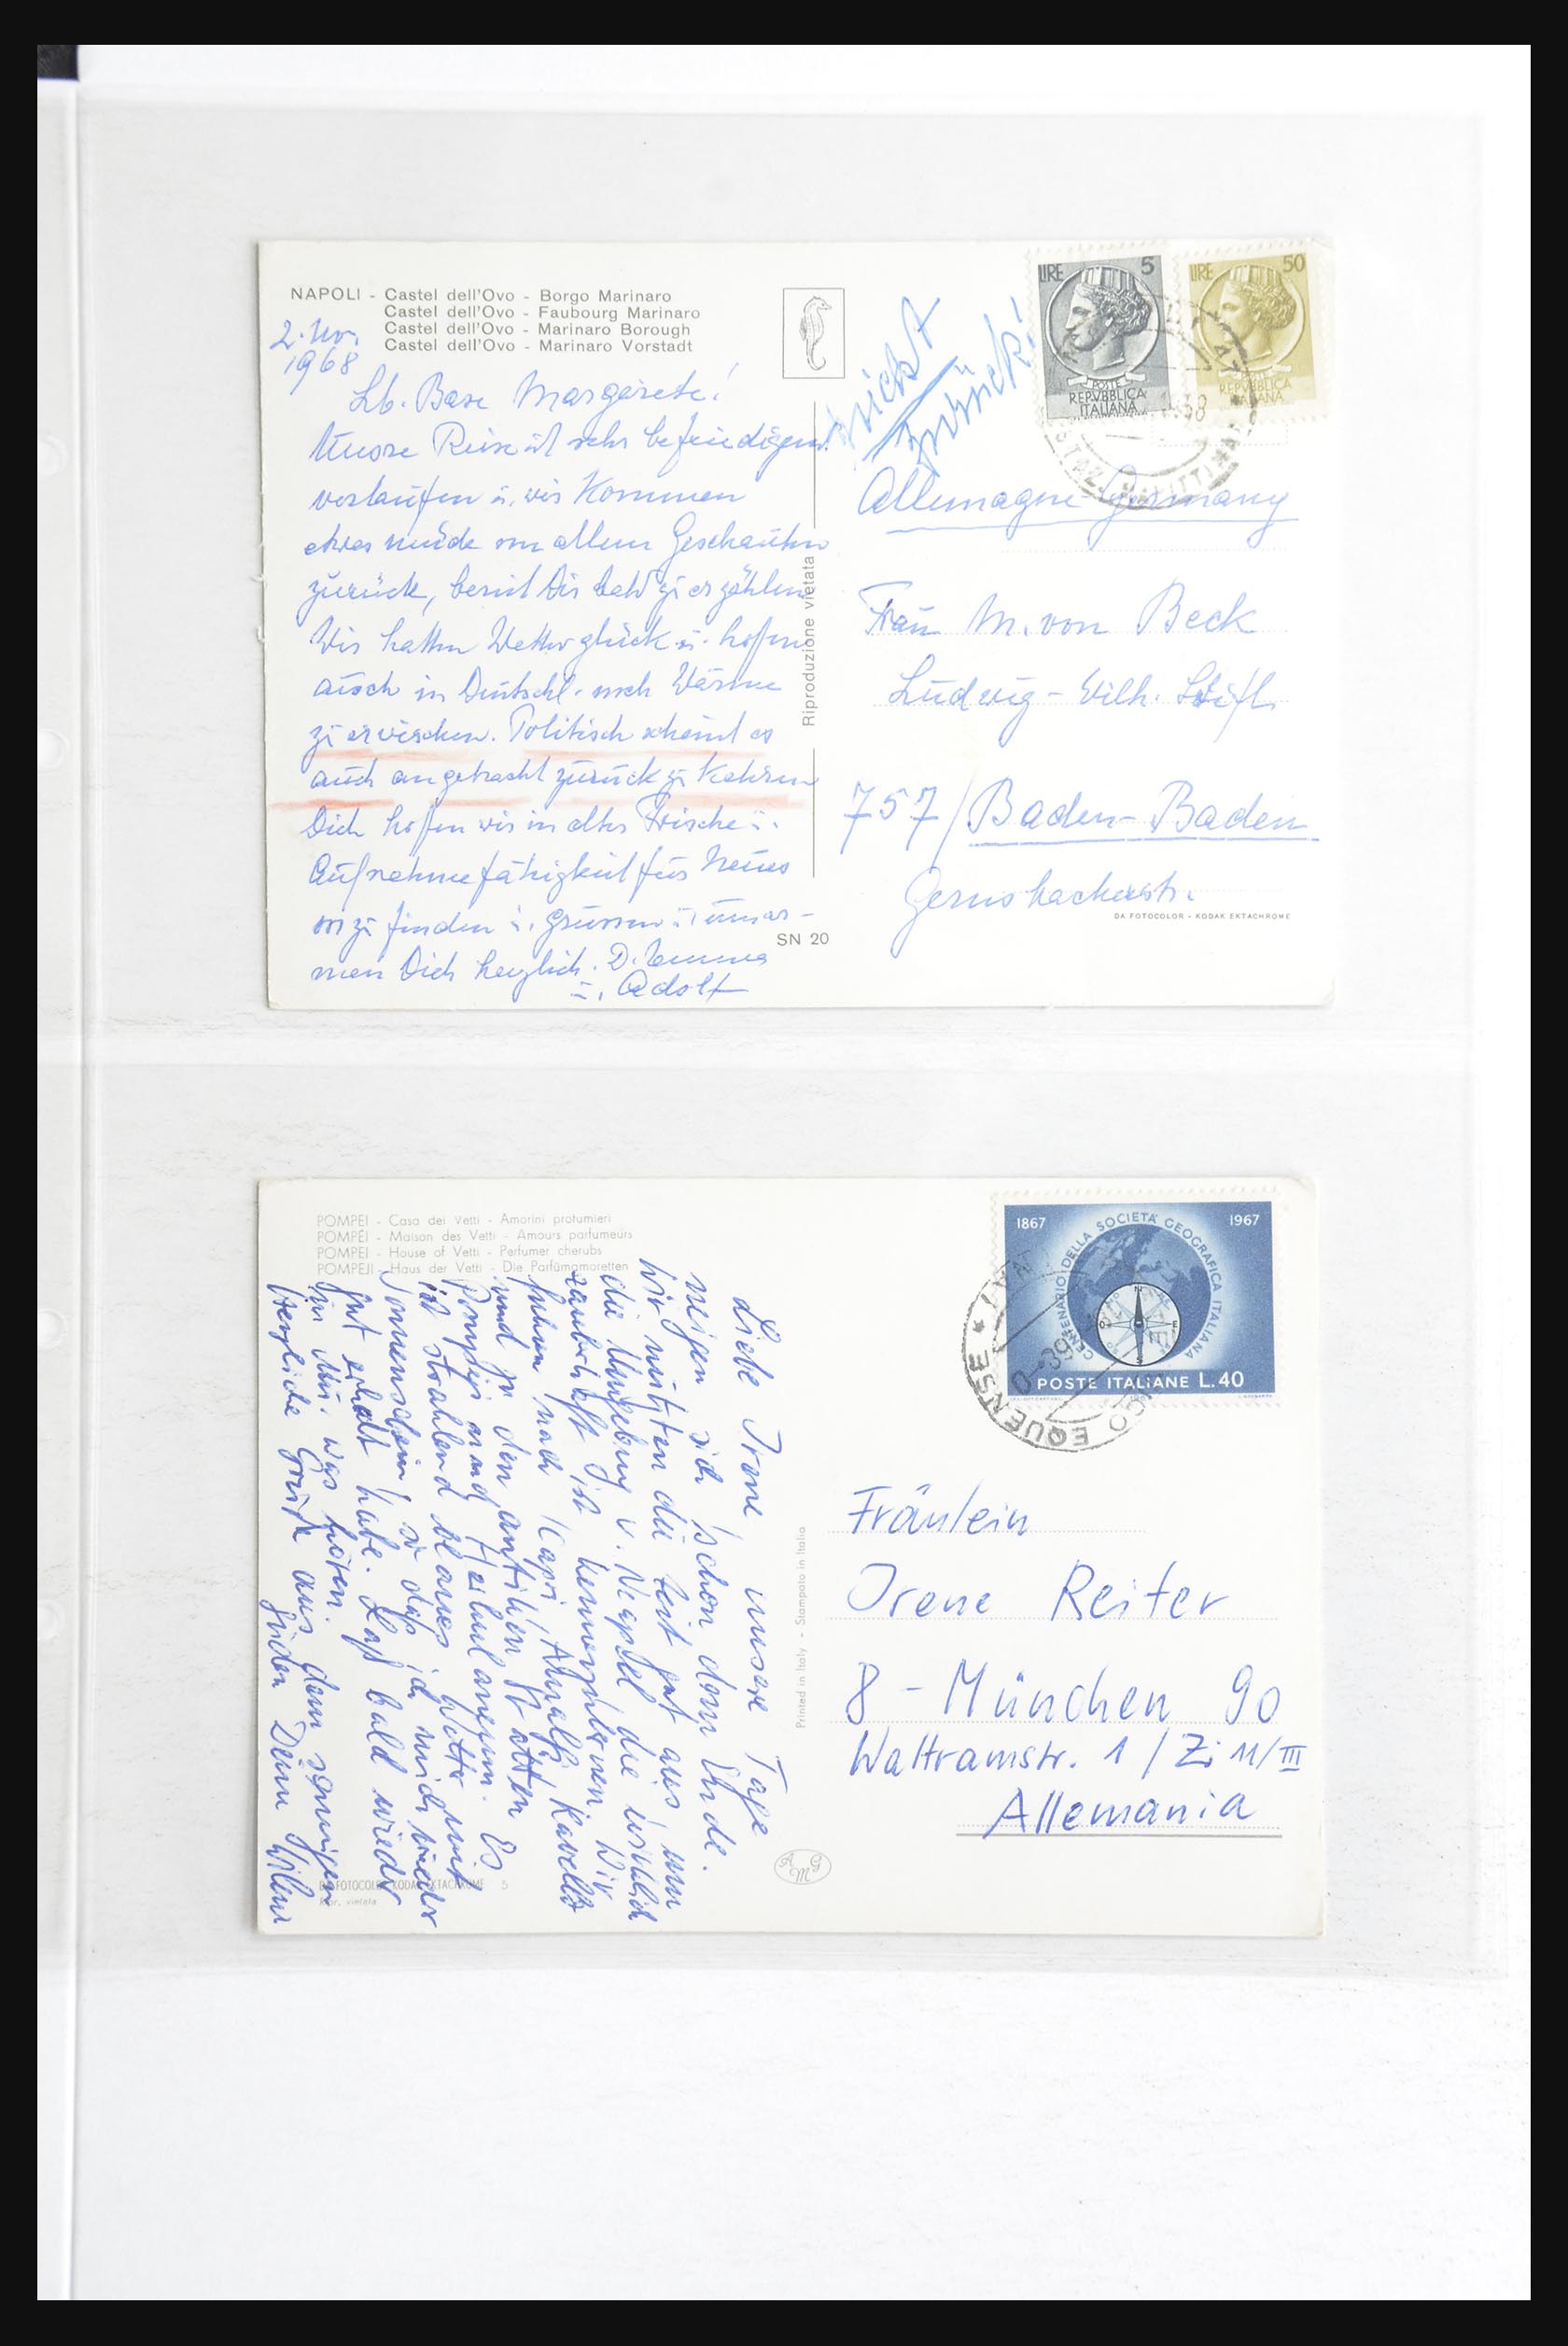 NAPOLI - Castel dell'Ovo - Borgo Marinaro
Castel dell'Ovo - Faubourg Marinaro
Castel dell'Ovo - Marinaro Borough
Castel dell'Ovo - Marinaro Vorstadt
2. Nov.
1968
Lb. Base Margarete!
Unsre Reise ist sehr befriedigend
verlaufen u. wir kommen
etwas müde von allem Geschauten
zurück, bereit Dir bald zu erzählen
Wir hatten Wetterglück u. hoffen
auch in Deutschl. noch Wärme
zu erwischen. Politisch scheint es
auch angebracht zurück zu kehren
Dich hoffen wir in alter Frische u.
Aufnahmefähigkeit für Neues
vorzufinden u. grüssen u. umar-
men Dich herzlich. D.
u. Adolf
nicht
zurück!
LIRE 5
POSTE
REPVBBLICA
ITALIANA
LIRE 50
REPVBBLICA
ITALIANA
Allemagne-Germany
Frau M. von Beck
Ludwig-Wilh. Stift
757/Baden-Baden
Gernsbacherstr.
Riproduzione vietata
DA FOTOCOLOR - KODAK EKTACHROME
SN 20
POMPEI - Casa dei Vetti - Amorini profumieri
POMPÉI - Maison des Vetti - Amours parfumeurs
POMPEI - House of Vetti - Perfumer cherubs
POMPEJI - Haus der Vetti - Die Parfümamoretten
Liebe Irene unsere Tage
neigen sich schon dem Ende.
Wir nützten die Zeit gut aus um
die Umgebung v. Neapel die wirklich
zauberhaft ist kennenzulernen. Wir
fuhren nach Capri, Amalfi, Ravello
und zu den antiken Stätten
Pompeji und Herkulaneum. Es
ist strahlend blaues Wetter mit
Sonnenschein, so daß ich mich wieder
gut erholt habe. Laß bald wieder
von Dir was hören.
Herzliche Grüße aus dem sonnigen
Süden Deine
1867 1967
CENTENARIO DELLA SOCIETÀ GEOGRAFICA ITALIANA
POSTE ITALIANE L.40
EQUENSE
Fräulein
Irene Reiter
8 - München 90
Waltramstr. 1 / Zi 11/III
Allemania
Printed in Italy - Stampato in Italia
AMG
DA FOTOCOLOR KODAK EKTACHROME 5
Ripr. vietata